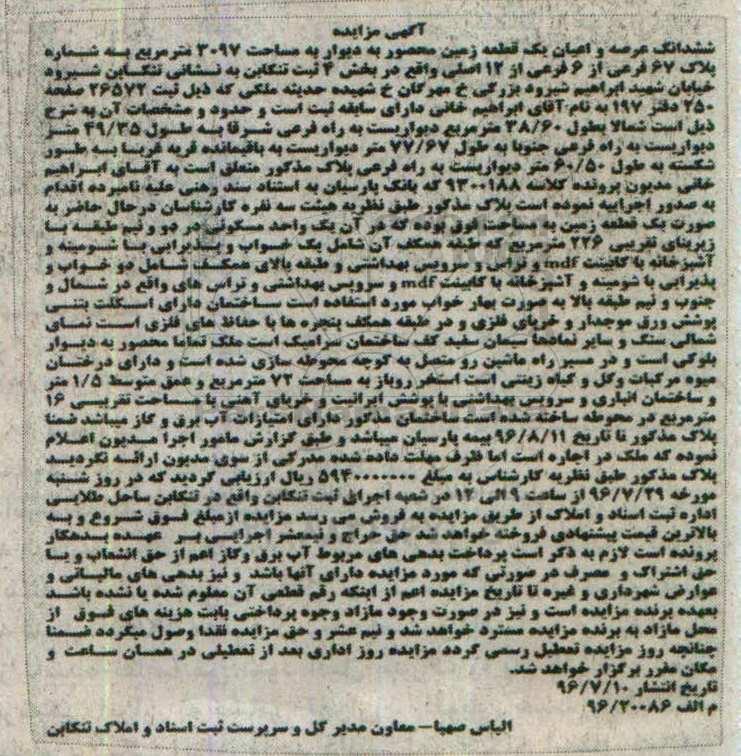 آگهی مزایده
ششدانگ عرصه و اعیان یک قطعه زمین محصور به دیوار به مساحت ۳۰۹۷ مترمربع به شماره
پلاک ۶۷ فرعی از ۶ فرعی از ۱۲ اصلی واقع در بخش ۴ ثبت تنکابن به نشانی تنکابن شیرود
خیابان شهید ابراهیم شیرود بزرگی خ مهرگان خ شهیده حدیثه ملکی که ذیل ثبت ۲۶۵۷۲ صفحه
۲۵۰ دفتر ۱۹۷ به نام آقای ابراهیم خانی دارای سابقه ثبت است و حدود و مشخصات آن به شرح
ذیل است شمالا بطول ۳۸/۶۰ مترمربع دیواریست به راه فرعی شرقا به طول ۴۹/۳۵ متر
دیواریست به راه فرعی جنوبا به طول ۷۷/۶۷ متر دیواریست به باقیمانده قریه غربا به طور
شکسته به طول ۶۰/۵۰ متر دیواریست به راه فرعی پلاک مذکور متعلق است به آقای ابراهیم
خانی مدیون پرونده کلاسه ۹۳۰۰۱۸۸ که بانک پارسیان به استناد سند رهنی علیه نامبرده اقدام
به صدور اجراییه نموده است پلاک مذکور طبق نظریه هیئت سه نفره کارشناسان درحال حاضر به
صورت یک قطعه زمین به مساحت فوق بوده که در آن یک واحد مسکونی در دو و نیم طبقه با
زیربنای تقریبی ۲۲۶ مترمربع که طبقه همکف آن شامل یک خواب و پذیرایی با شومینه و
آشپزخانه با کابینت mdf و تراس و سرویس بهداشتی و طبقه بالای همکف شامل دو خواب و
پذیرایی با شومینه و آشپزخانه با کابینت mdf و سرویس بهداشتی و تراس های واقع در شمال و
جنوب و نیم طبقه بالا به صورت بهار خواب مورد استفاده است ساختمان دارای اسکلت بتنی
پوشش ورق موجدار و خرپای فلزی و در طبقه همکف پنجره ها با حفاظ های فلزی است نمای
شمالی سنگ و سایر نمادها سیمان سفید کف ساختمان سرامیک است ملک تماما محصور به دیوار
بلوکی است و در مسیر راه ماشین رو متصل به کوچه محوطه سازی شده است و دارای درختان
میوه مرکبات وگل و گیاه زینتی است استخر روباز به مساحت ۷۲ مترمربع و عمق متوسط ۱/۵ متر
و ساختمان انباری و سرویس بهداشتی با پوشش ایرانیت و خرپای آهنی با مساحت تقریبی ۱۶
مترمربع در محوطه ساخته شده است ساختمان مذکور دارای امتیازات آب برق و گاز میباشد ضمنا
پلاک مذکور تا تاریخ ۹۶/۸/۱۱ بیمه پارسیان میباشد و طبق گزارش مامور اجرا مدیون اعلام
نموده که ملک در اجاره است اما ظرف مهلت داده شده مدرکی از سوی مدیون ارائه نگردید
پلاک مذکور طبق نظریه کارشناس به مبلغ ۵۹۴۰۰۰۰۰۰۰ ریال ارزیابی گردید که در روز شنبه
مورخه ۹۶/۷/۲۹ از ساعت ۹ الی ۱۲ در شعبه اجرای ثبت تنکابن واقع در تنکابن ساحل طلایی
اداره ثبت اسناد و املاک از طریق مزایده به فروش می رسد مزایده ازمبلغ فوق شروع و به
بالاترین قیمت پیشنهادی فروخته خواهد شد حق حراج و نیمعشر اجرایی بر عهده بدهکار
پرونده است لازم به ذکر است پرداخت بدهی های مربوط آب برق وگاز اعم از حق انشعاب و یا
حق اشتراک و مصرف در صورتی که مورد مزایده دارای آنها باشد و نیز بدهی های مالیاتی و
عوارض شهرداری و غیره تا تاریخ مزایده اعم از اینکه رقم قطعی آن معلوم شده یا نشده باشد
بعهده برنده مزایده است و نیز در صورت وجود مازاد وجوه پرداختی بابت هزینه های فوق از
محل مازاد به برنده مزایده مسترد خواهد شد و نیم عشر و حق مزایده نقدا وصول میگردد ضمنا
چنانچه روز مزایده تعطیل رسمی گردد مزایده روز اداری بعد از تعطیلی در همان ساعت و
مکان مقرر برگزار خواهد شد.
تاریخ انتشار ۹۶/۷/۱۰
م الف ۹۶/۲۰۰۸۶
الیاس صهبا– معاون مدیر کل و سرپرست ثبت اسناد و املاک تنکابن